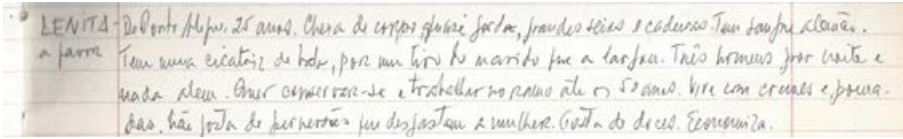 LENITA - De Ponte Alegre. 25 anos. Cheia de corpo, quasi gorda, grandes seios e cadeiras. Tem sangue alemão.
a farra Tem uma cicatriz de bala, por um tiro do marido que a largou. Três homens por noite e
nada alem. Quer conservar-se e trabalhar no ramo até os 50 anos. Vive com cremes e poma-
das. Não gosta de perversões que desgastam a mulher. Gosta de doces. Economiza.